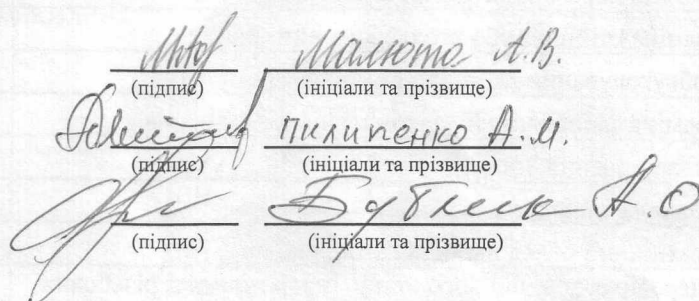 Малюта А.В.
(підпис) (ініціали та прізвище)
Пилипенко А.М.
(підпис) (ініціали та прізвище)
Бублик А.О
(підпис) (ініціали та прізвище)